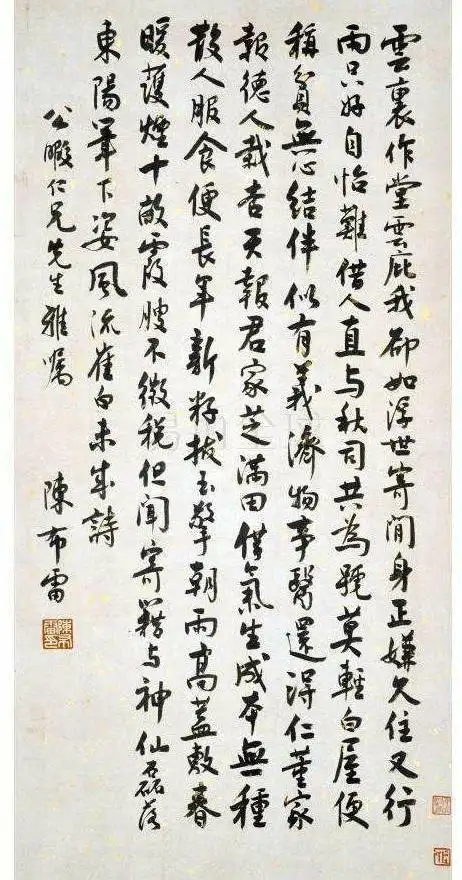 雲裏作堂雲庇我卻如浮世寄閒身正嫌久住又行
雨只好自怡難借人直與秋司共為號莫輕白屋便
稱貧無心結伴似有義濟物事醫還得仁董家
報德人栽杏天報君家芝滿田借氣生成本無種
散人服食便長年新籽拔玉擎朝雨高蓋敷春
暖護煙十畝霞腴不徵稅但聞寄籍與神仙磊落
東陽筆下姿風流崔白未成詩
公暇仁兄先生雅囑
陳布雷